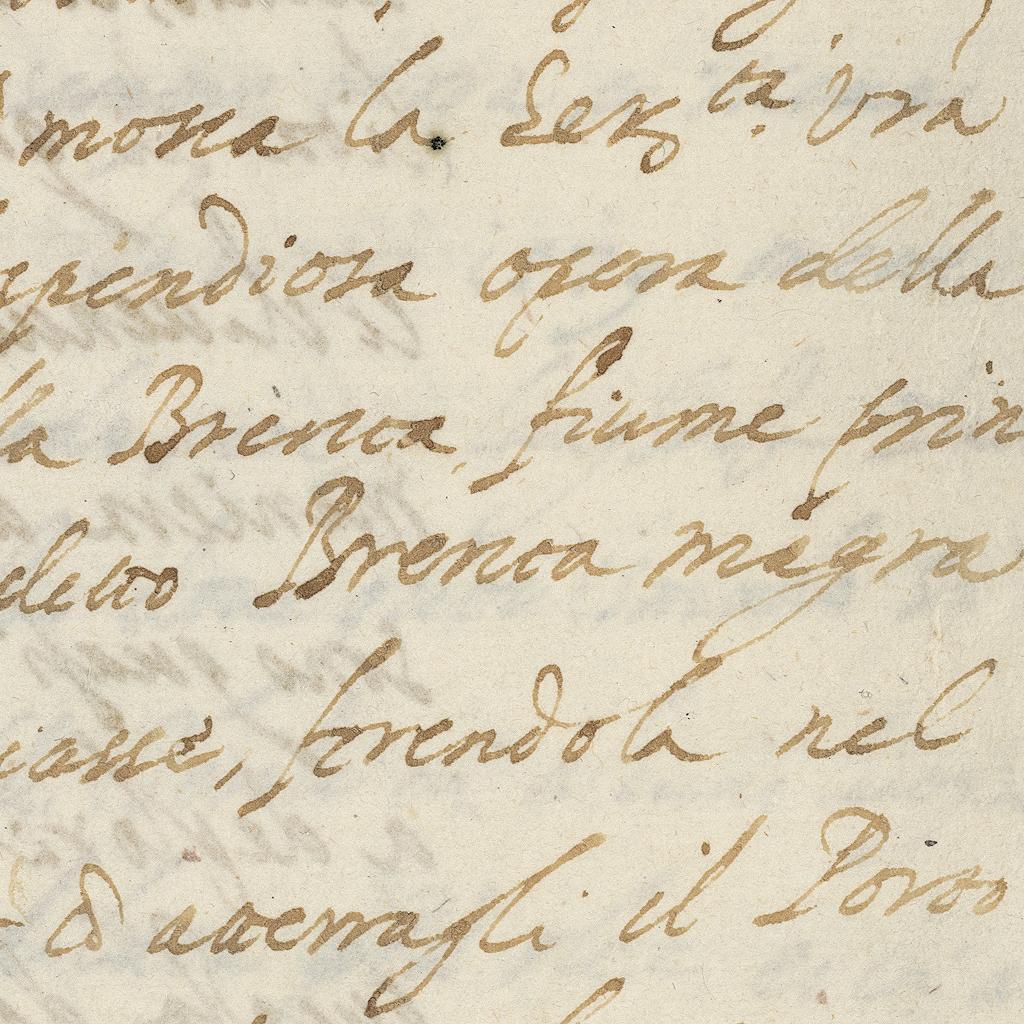 mossa la Ser.ta vra
spendiosa opera della
la Brenta, fiume prin
detto Brenta magra
iasse, forendola nel
ò atterragli il Porto